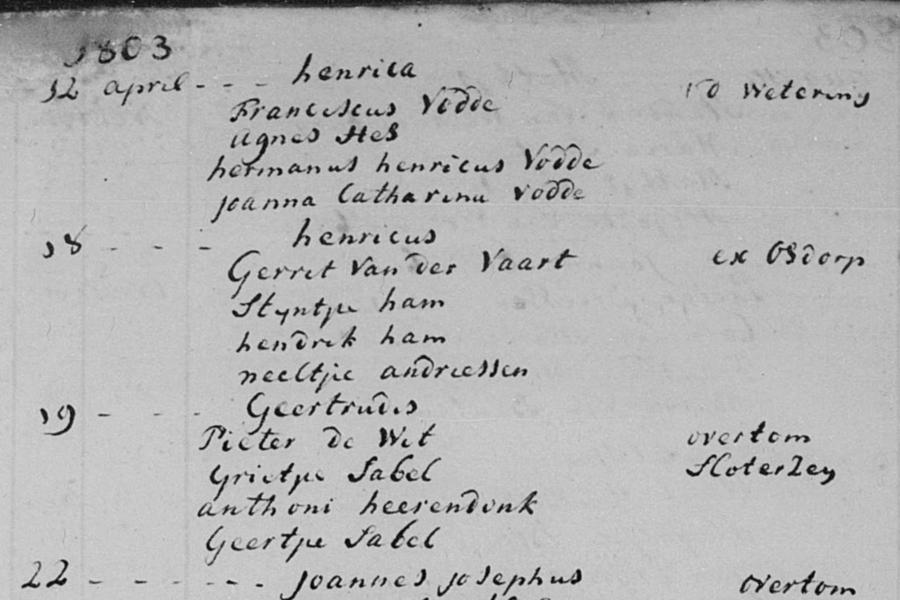 1803
12 april - - - henrica
Franciscus Vodde Wetering
agnes Hes
hermanus henricus Vodde
joanna Catharina Vodde
18 - - - henricus
Gerret Van der Vaart ex Osdorp
Styntje ham
hendrik ham
neeltje andriessen
19 - - - Geertrudis
Pieter de Wet overtom
Grietje Sabel Sloterzey
anthoni heerendonk
Geertje Sabel
22 - - - - - joannes josephus overtom